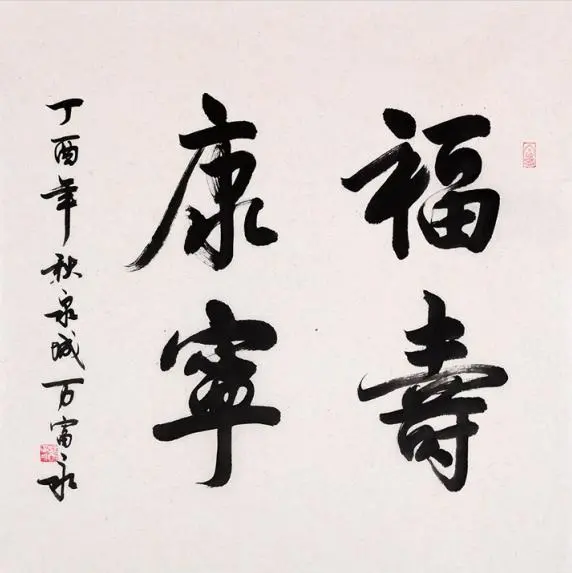 福壽
康寧
丁酉年秋泉城万富永